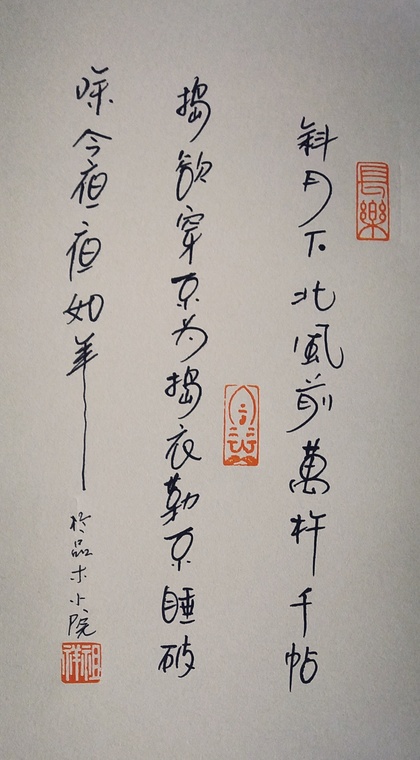 長樂
斜月下北風前萬杵千帖
搗欲穿不为搗衣勤不睡破
除今夜夜如年
於品木小院
祖祥